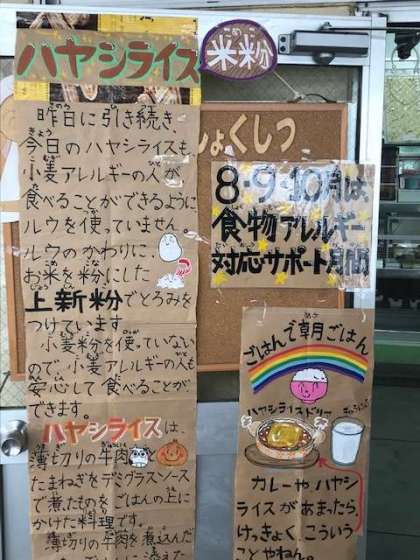 ハヤシライス
米粉
昨日に引き続き、
今日のハヤシライスも
小麦アレルギーの人が
食べることができるように
ルウを使っていません。
ルウのかわりに、
お米を粉にした
上新粉でとろみを
つけています。
小麦粉を使っていない
ので、小麦アレルギーの人も
安心して食べることが
できます。
ハヤシライスは、
薄切りの牛肉や
たまねぎをデミグラスソース
で煮たものをごはんの上に
かけた料理です。
薄切りの牛肉を煮込んだ
しょくしつ
8・9・10月は
食物アレルギー
対応サポート月間
ごはんで朝ごはん
ハヤシライスドリア
ぎゅうにゅう
カレーやハヤシ
ライスがあまったら、
けっきょくこういう
ことやねん。